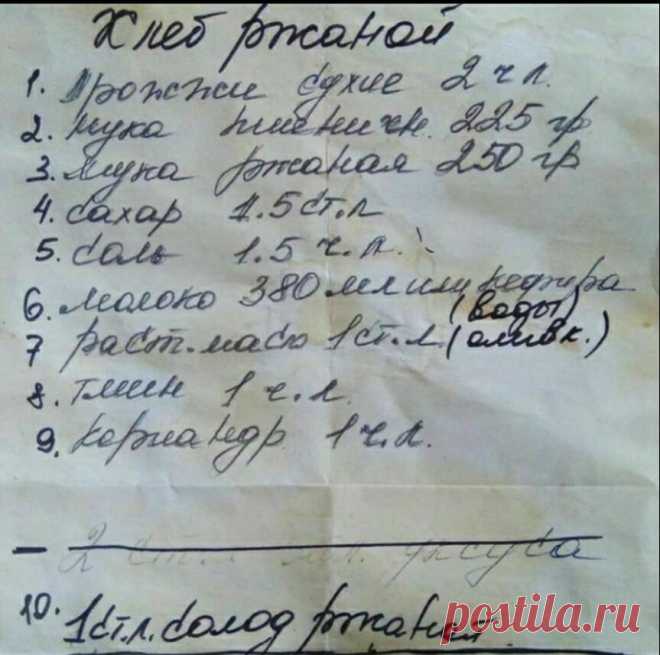 Хлеб ржаной
1. Дрожжи сухие 2 ч л.
2. мука пшеничн. 225 гр
3. мука ржаная 250 гр
4. сахар 1.5 ст.л
5. соль 1.5 ч.л.
6. молоко 380 мл или кефира
(воды)
7 раст. масло 1 ст.л. (оливк.)
8. тмин 1 ч.л.
9. кориандр 1 ч.л.
– 2 ст. уксуса
10. 1 ст.л. солод ржаной
postila.ru